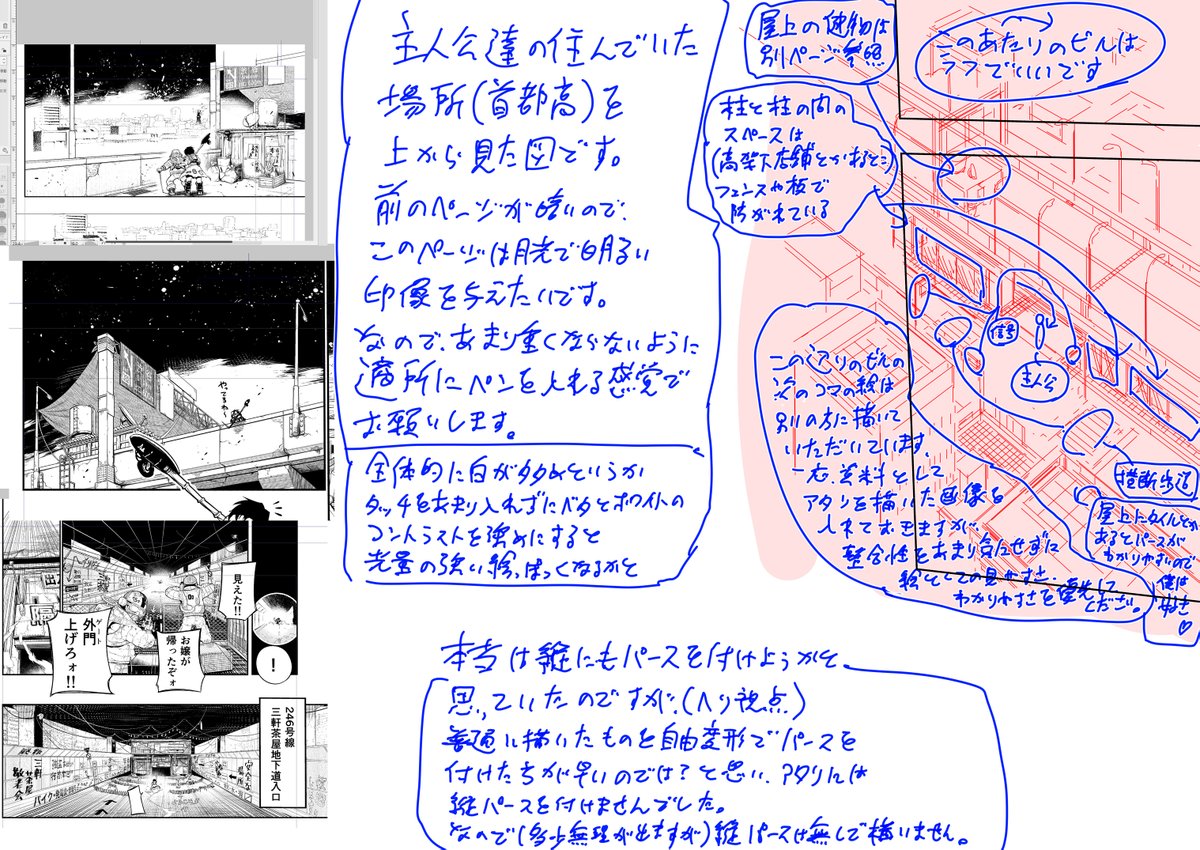 主人公達の住んでいた
場所(首都高)を
上から見た図です。
前のページが暗いので、
このページは月光で明るい
印象を与えたいです。
なので、あまり重くならないように
適所にペンを入れる感覚で
お願いします。
全体的に白が多めというか
タッチをあまり入れずにベタとホワイトの
コントラストを強めにすると
光量の強い絵っぽくなるかと
屋上の建物は
別ページ参照
このあたりのビルは
ラフでいいです
柱と柱の内の
スペースは
(高架下店舗とかあるとこ)
フェンスや板で
防がれている
信号
主人公
横断歩道
このくだりのビルの
次のコマの絵は
別の方に描いて
いただいています、
一応、資料として
アタリを描いた画像を
入れておきますが、
整合性をあまり気にせずに
絵としての見やすさ、
わかりやすさを優先して
ください。
屋上にタイルとか
あるとパースが
わかりやすいので
僕は
好き♡
本当は縦にもパースを付けようかと、
思っていたのですが、(ヘリ視点)
普通に描いたものを自由変形でパースを
付けた方が早いのでは?と思い、アタリには
縦パースを付けませんでした。
なので(多少無理が出ますが)縦パースは無しで構いません。
やってるわー
見えた!!
お嬢が
帰ったぞォ
外門
ゲート
上げろォ!!
!
出
隔
246号線
三軒茶屋地下道入口
三軒
茶屋
敬老会